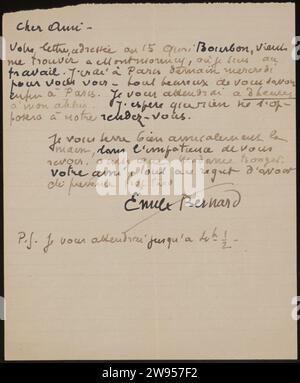 Cher Ami -
Votre lettre adressée au 15 Quai Bourbon, vient
me trouver à Montmorency, où je suis au
travail. J'irai à Paris demain mercredi
pour vous voir - tout heureux de vous savoir
enfin à Paris. Je vous attendrai à 3 heures
à mon atelier. J'espère que rien ne s'op-
posera à notre rendez-vous.
Je vous serre bien amicalement la
main, dans l'impatience de vous
revoir.
votre ami
Emile Bernard
P.S. Je vous attendrai jusqu'à 4h ½ -
alamy
Image ID: 2W957F2
www.alamy.com